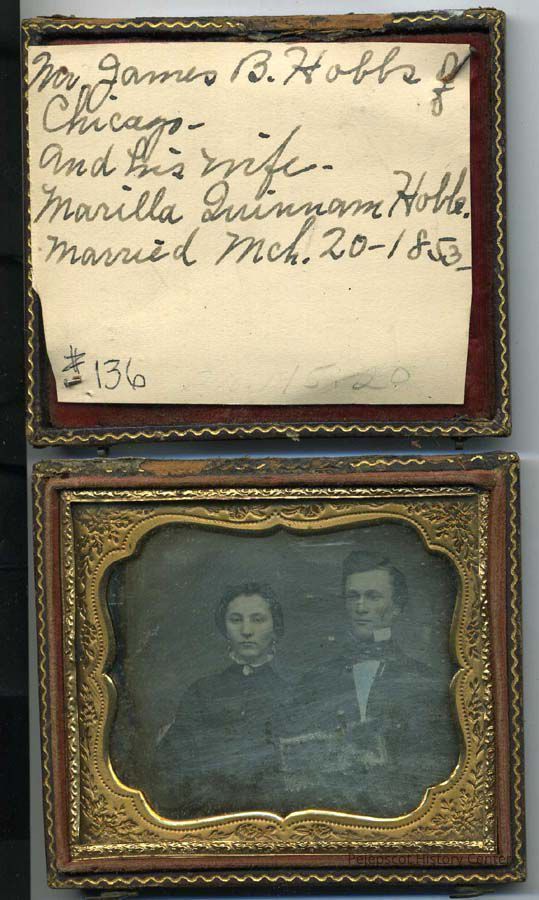 Mr James B. Hobbs of
Chicago -
and his wife -
Marilla Quinnam Hobbs.
Married Mch. 20 - 1853
# 136
15.20
Pejepscot History Center